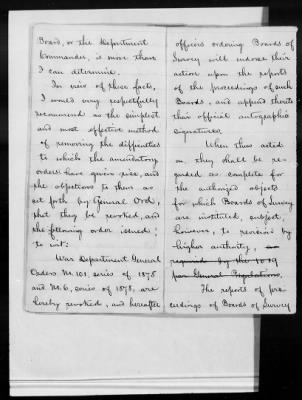 Board, or the Department
Commander, is more than
I can determine.
In view of these facts,
I would very respectfully
recommend as the simplest
and most effective method
of removing the difficulties
to which the amendatory
orders have given rise, and
the objections to them as
set forth by General Ord,
that they be revoked, and
the following order issued;
to wit:
War Department General
Orders No. 101, series of 1875
and No. 6, series of 1878, are
hereby revoked, and hereafter
officers ordering Boards of
Survey will indorse their
action upon the reports
of the proceedings of such
Boards, and append thereto
their official autographic
signatures.
When thus acted
on they shall be re-
garded as complete for
the authorized objects
for which Boards of Survey
are instituted, subject,
however, to revision by
higher authority, as
required by the 1019
par. General Regulations.
The reports of pro-
ceedings of Boards of Survey